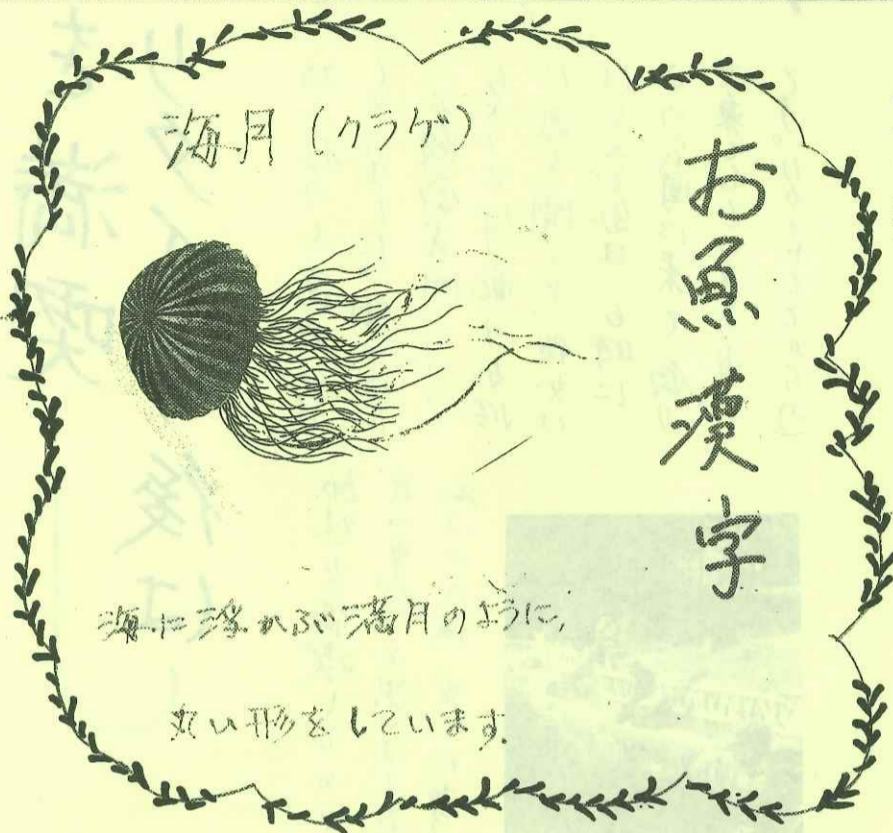 お魚漢字
海月(クラゲ)
海に浮かぶ満月のように、
丸い形をしています。